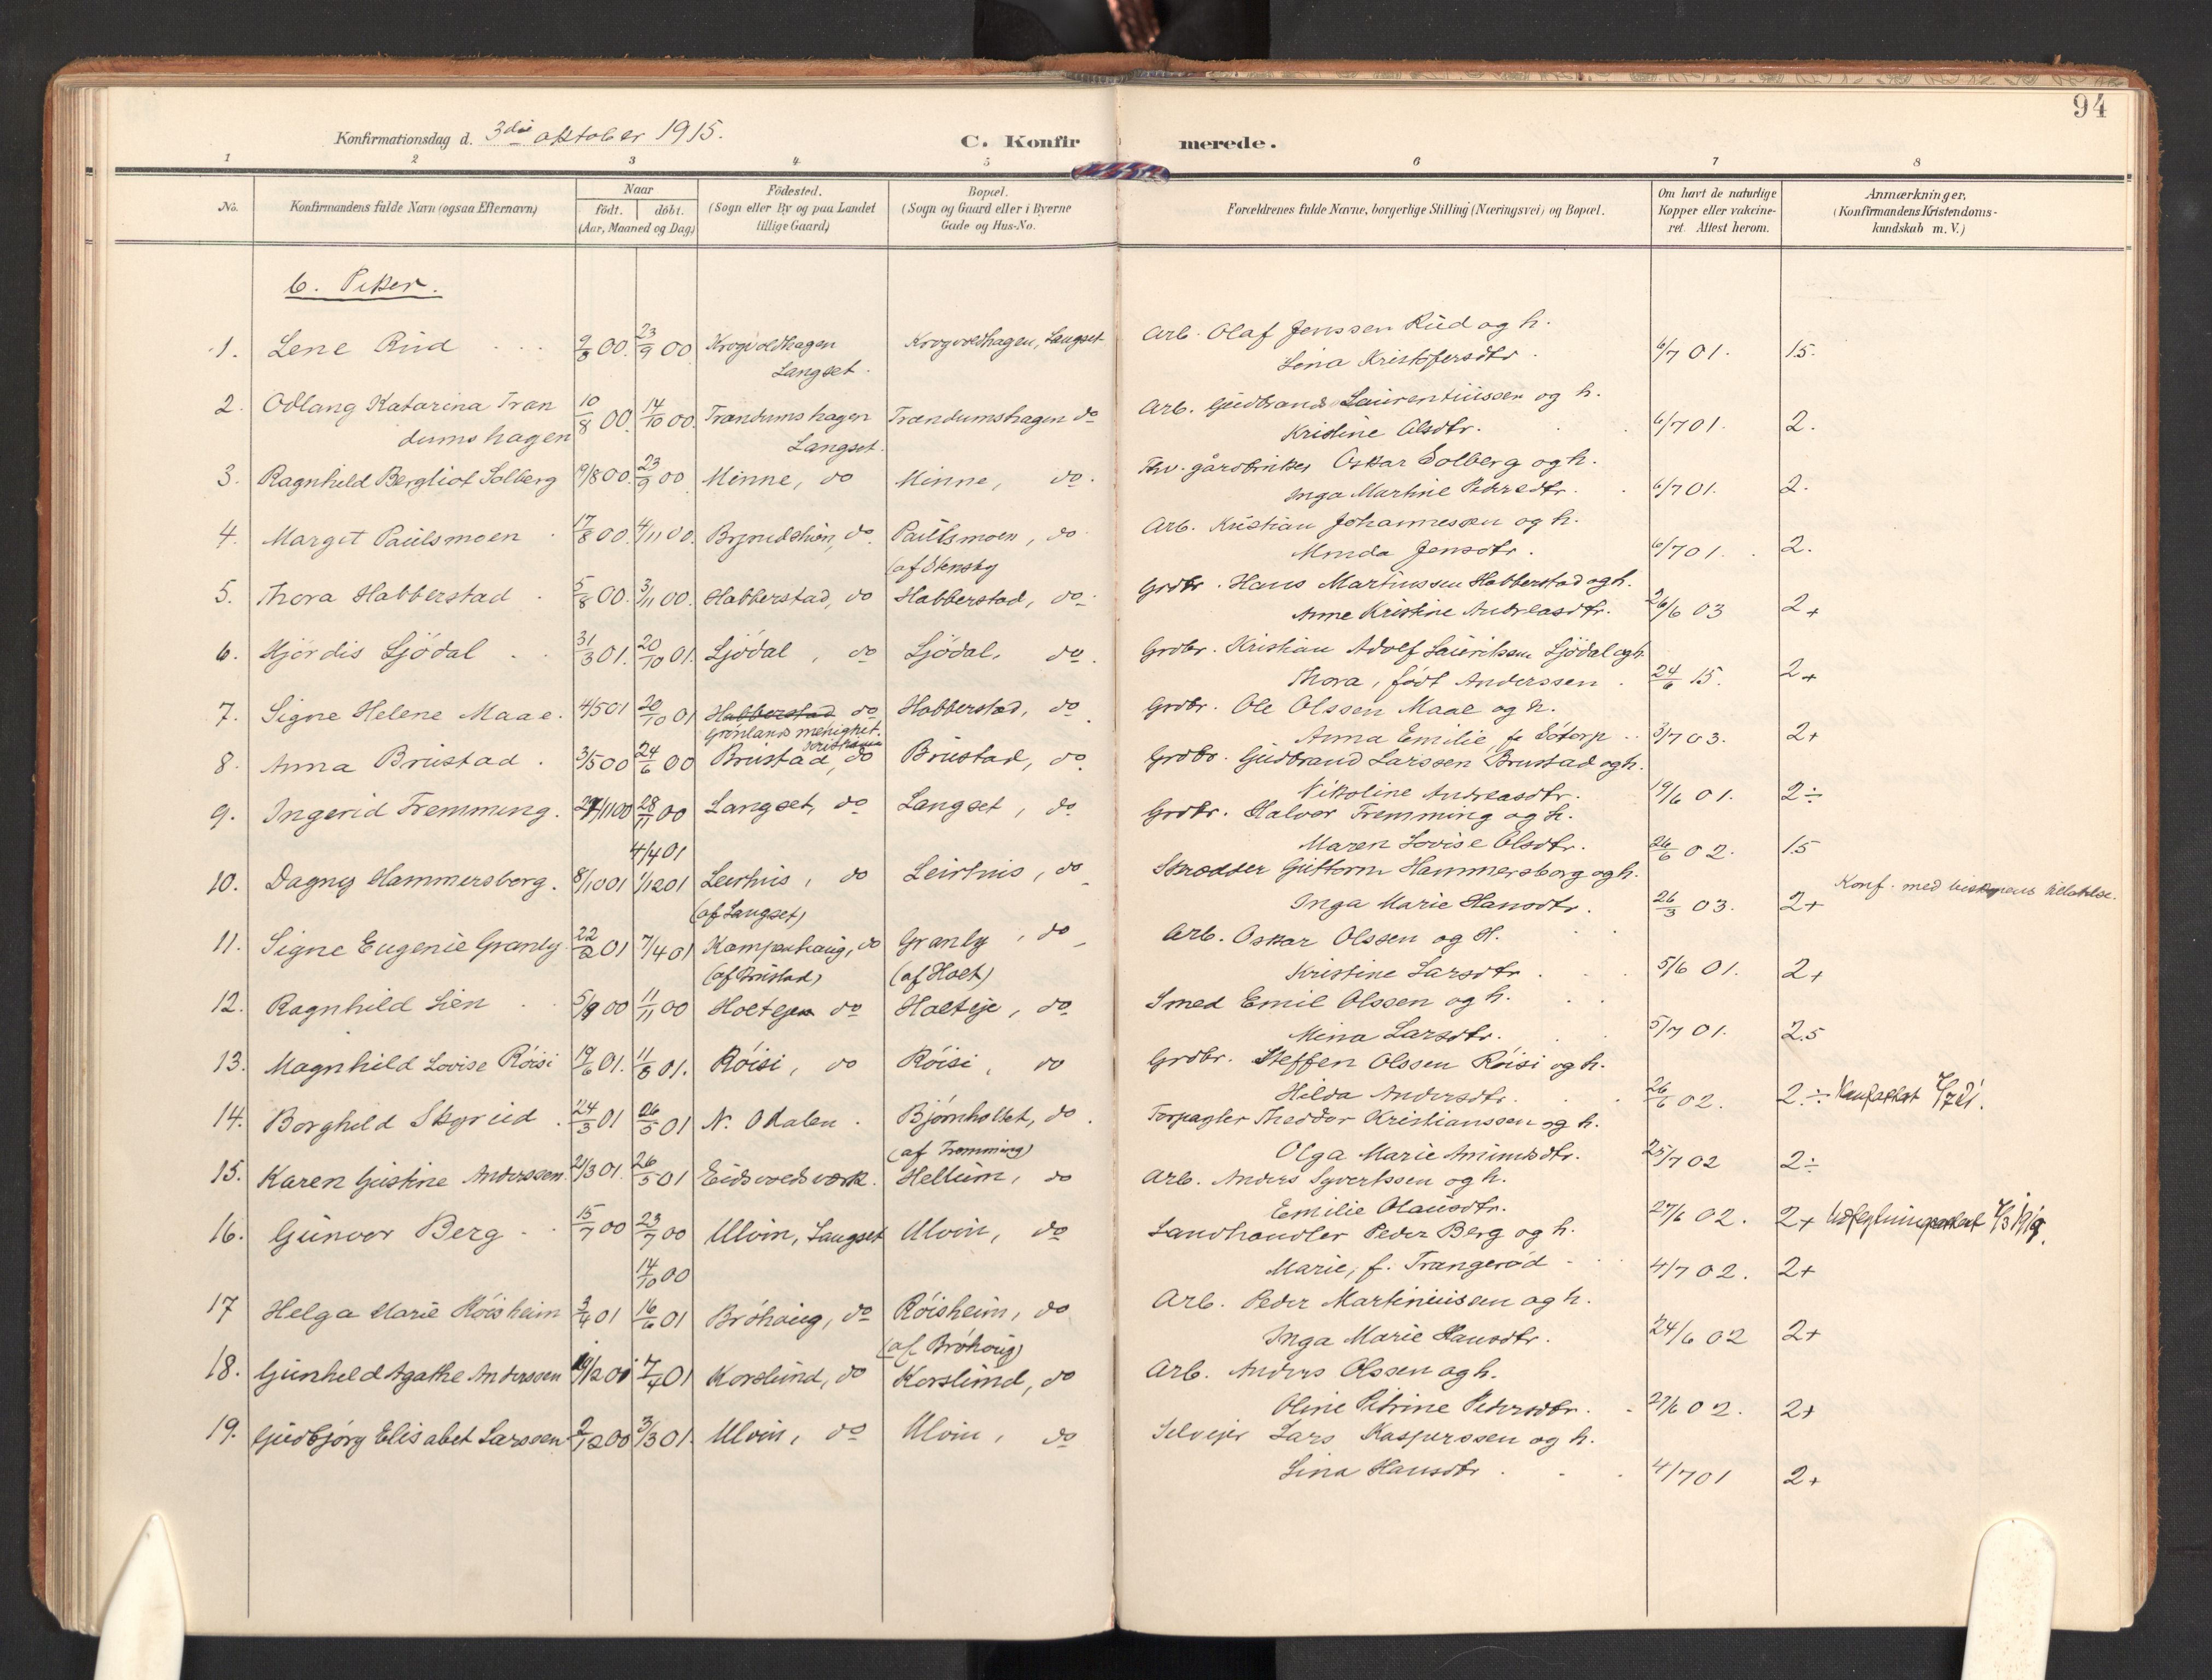 94
Konfirmationsdag d. 3die oktober 1915. C. Konfirmerede.
1 2 3 4 5 6 7 8
No. Konfirmandens fulde Navn (ogsaa Efternavn) Naar födt. döbt. (Aar, Maaned og Dag) Födested. (Sogn eller By og paa Landet tillige Gaard) Bopæl. (Sogn og Gaard eller i Byerne Gade og Hus-No. Forældrenes fulde Navne, borgerlige Stilling (Næringsvei) og Bopæl. Om havt de naturlige Kopper eller vakcineret. Attest herom. Anmærkninger, (Konfirmandens Kristendomskundskab m. V.)
b. Piker.
1. Lene Rud 9/8 00. 23/9 00 Krogvoldhagen Langset. Krogvoldhagen, Langset Arb. Olaf Jenssen Rud og h.
Lina Kristofersdtr. 6/7 01. 1.5.
2. Odlaug Katarina Trandumshagen 10/8 00. 14/10 00. Trandumshagen Langset. Trandumshagen do Arb. Gudbrand Laurentiussen og h.
Kristine Olsdtr. 6/7 01. 2.
3. Ragnhild Bergliot Solberg 19/8 00. 23/9 00 Minne, do Minne, do. Thv. gårdbruker Oskar Solberg og h.
Inga Martine Pedersdtr. 6/7 01. 2.
4. Margit Paulsmoen 17/8 00. 4/11 00. do. Paulsmoen, do (af Stensby Arb. Kristian Johannessen og h.
Minda Jensdtr. 6/7 01. 2.
5. Thora Habberstad 5/8 00. 3/11 00. Habberstad, do Habberstad, do. Grdbr. Hans Martinssen Habberstad og h.
Anne Kristine Andreasdtr. 26/6 03 2+
6. Hjördis Ljödal 31/3 01. 20/10 01. Ljödal, do Ljödal, do. Grdbr. Kristian Adolf Lauritsen Ljödal og h
Thora, født Anderssen 24/6 15. 2+
7. Signe Helene Maae. 4/5 01 20/10 01 Habberstad do Grønlands menighet. Kristiania Habberstad, do. Grdbr. Ole Olssen Maae og h.
Anna Emilie, f. Sótorp 3/7 03. 2+
8. Anna Brustad. 3/5 00 24/6 00 Brustad, do Brustad, do. Grdbr. Gudbrand Larssen Brustad og h.
Nikoline Andreasdtr. 19/6 01. 2÷
9. Ingerid Fremming. 27/11 00 28/11 00 Langset, do Langset, do Grdbr. Halvor Fremming og h.
4/4 01
Maren Lovise Olsdtr. 26/6 02. 1.5
10. Dagny Hammersborg. 8/10 01 1/12 01 Leirhus, do (af Langset) Leirhus, do Skrædder Guttorm Hammersborg og h.
Inga Marie Hansdtr. 26/3 03. 2+ Konf. med biskopens tilladelse.
11. Signe Eugenie Granly 22/2 01 7/4 01 Kampenhaug, do (af Brustad) Granly, do (af Holt) Arb. Oskar Olssen og H.
Kristine Larsdtr. 5/6 01. 2+
12. Ragnhild Lien 5/9 00 11/11 00 Holteje do Holteje, do Smed Emil Olssen og h.
Mina Larsdtr. 5/7 01. 2.5
13. Magnhild Lovise Röisi 19/6 01. 11/8 01. Röisi, do Röisi, do Grdbr. Steffen Olssen Röisi og h.
Hilda Andersdtr. 26/6 02. 2.÷
14. Borghild Skyrud 24/3 01 26/5 01 N. Odalen. Bjørnholtet, do. (af Fremming) Forpagter Theodor Kristianssen og h.
Olga Marie Amundsdtr. 25/7 02 2÷
15. Karen Gustine Anderssen. 21/3 01. 26/5 01 Eidsvoldsværk. Hellum, do Arb. Anders Syvertssen og h.
Emilie Olausdtr. 27/6 02. 2+ Udflytningsattest
16. Gunvor Berg 15/7 00 23/7 00 Ulvin, Langset Ulvin, do Landhandler Peder Berg og h.
14/10 00
Marie, f. Trangeröd 4/7 02. 2+
17 Helga Marie Röisheim 3/4 01 16/6 01 Bröhaug, do Röisheim, do (af Bröhaug) Arb. Peder Martiniussen og h.
Inga Marie Hansdtr. 24/6 02 2+
18. Gunhild Agathe Anderssen 19/12 00 7/4 01 Korslund, do Korslund, do Arb. Anders Olssen og h.
Oline Petrine Pedersdtr. 27/6 02. 2+
19. Gudbjörg Elisabet Larssen 2/12 00 3/3 01. Ulvin, do Ulvin, do Selveier Lars Kasperssen og h.
Lina Hansdtr. 4/7 01 2+